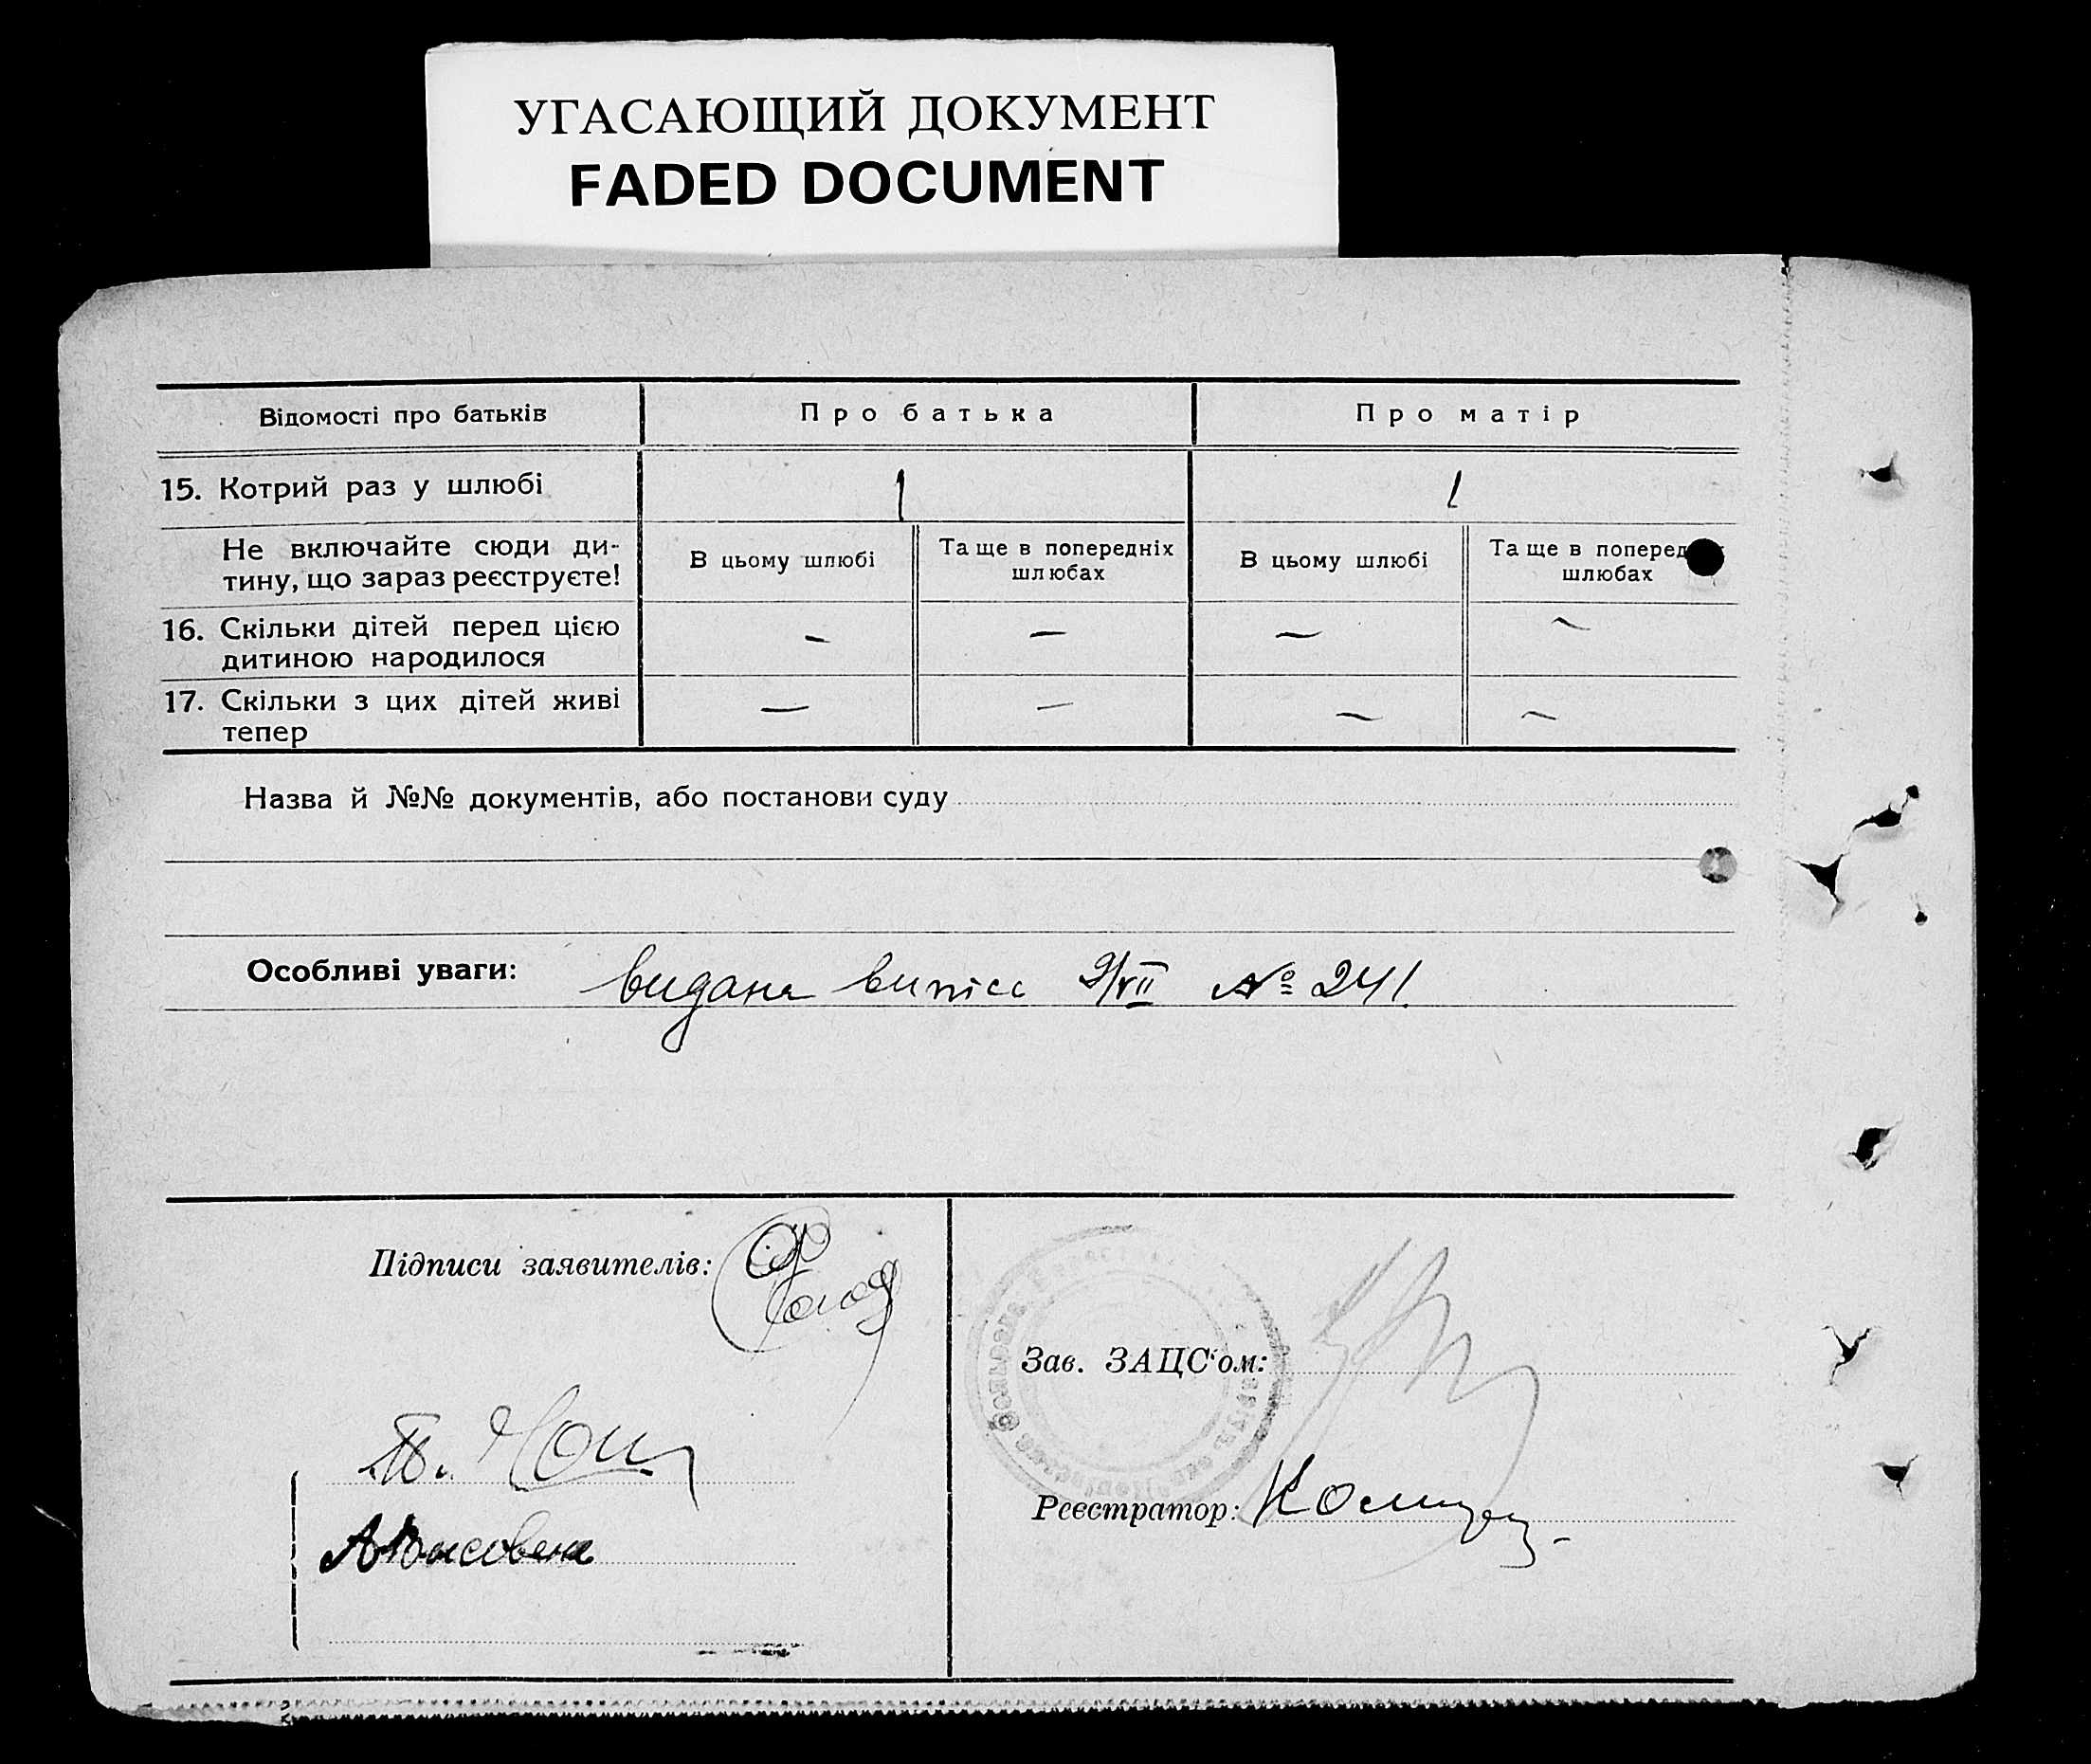 УГАСАЮЩИЙ ДОКУМЕНТ
FADED DOCUMENT
Відомості про батьків
Про батька
Про матір
15. Котрий раз у шлюбі
1
1
Не включайте сюди ди-
тину, що зараз реєструєте!
В цьому шлюбі
Та ще в попередніх
шлюбах
В цьому шлюбі
Та ще в поперед
шлюбах
16. Скільки дітей перед цією
дитиною народилося
—
—
—
—
17. Скільки з цих дітей живі
тепер
—
—
—
—
Назва й №№ документів, або постанови суду
Особливі уваги: видана випіс 9/VII № 241
Підписи заявителів:
Зав. ЗАЦС'ом:
Реєстратор: